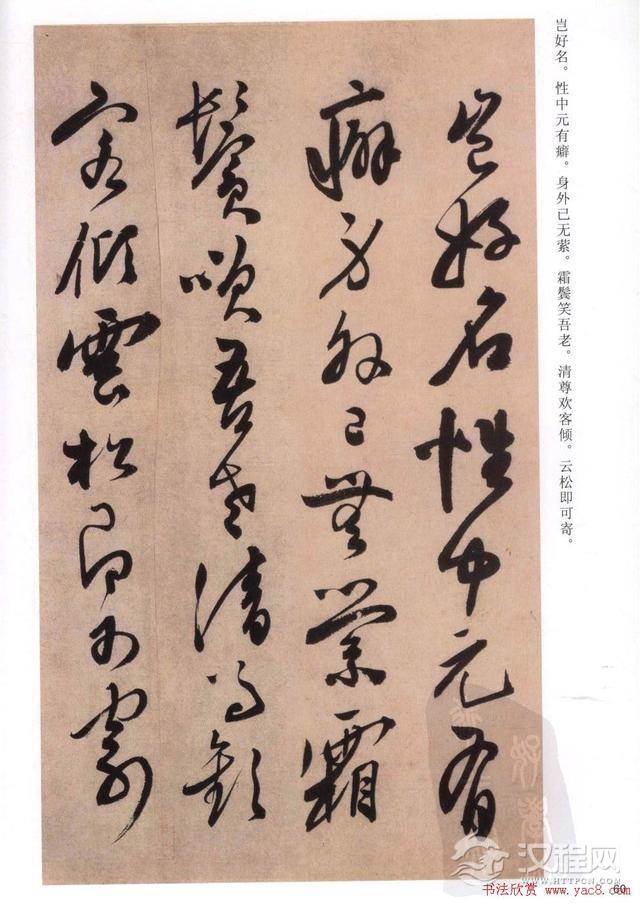 岂好名。性中元有癖。身外已无萦。霜鬓笑吾老。清尊欢客倾。云松即可寄。
豈好名性中元有
癖身外已無縈霜
鬢咲吾老清尊歡
客傾雲松即可寄
汉程网
WWW.HTTPCN.COM
60
书法欣赏 www.yac8.com